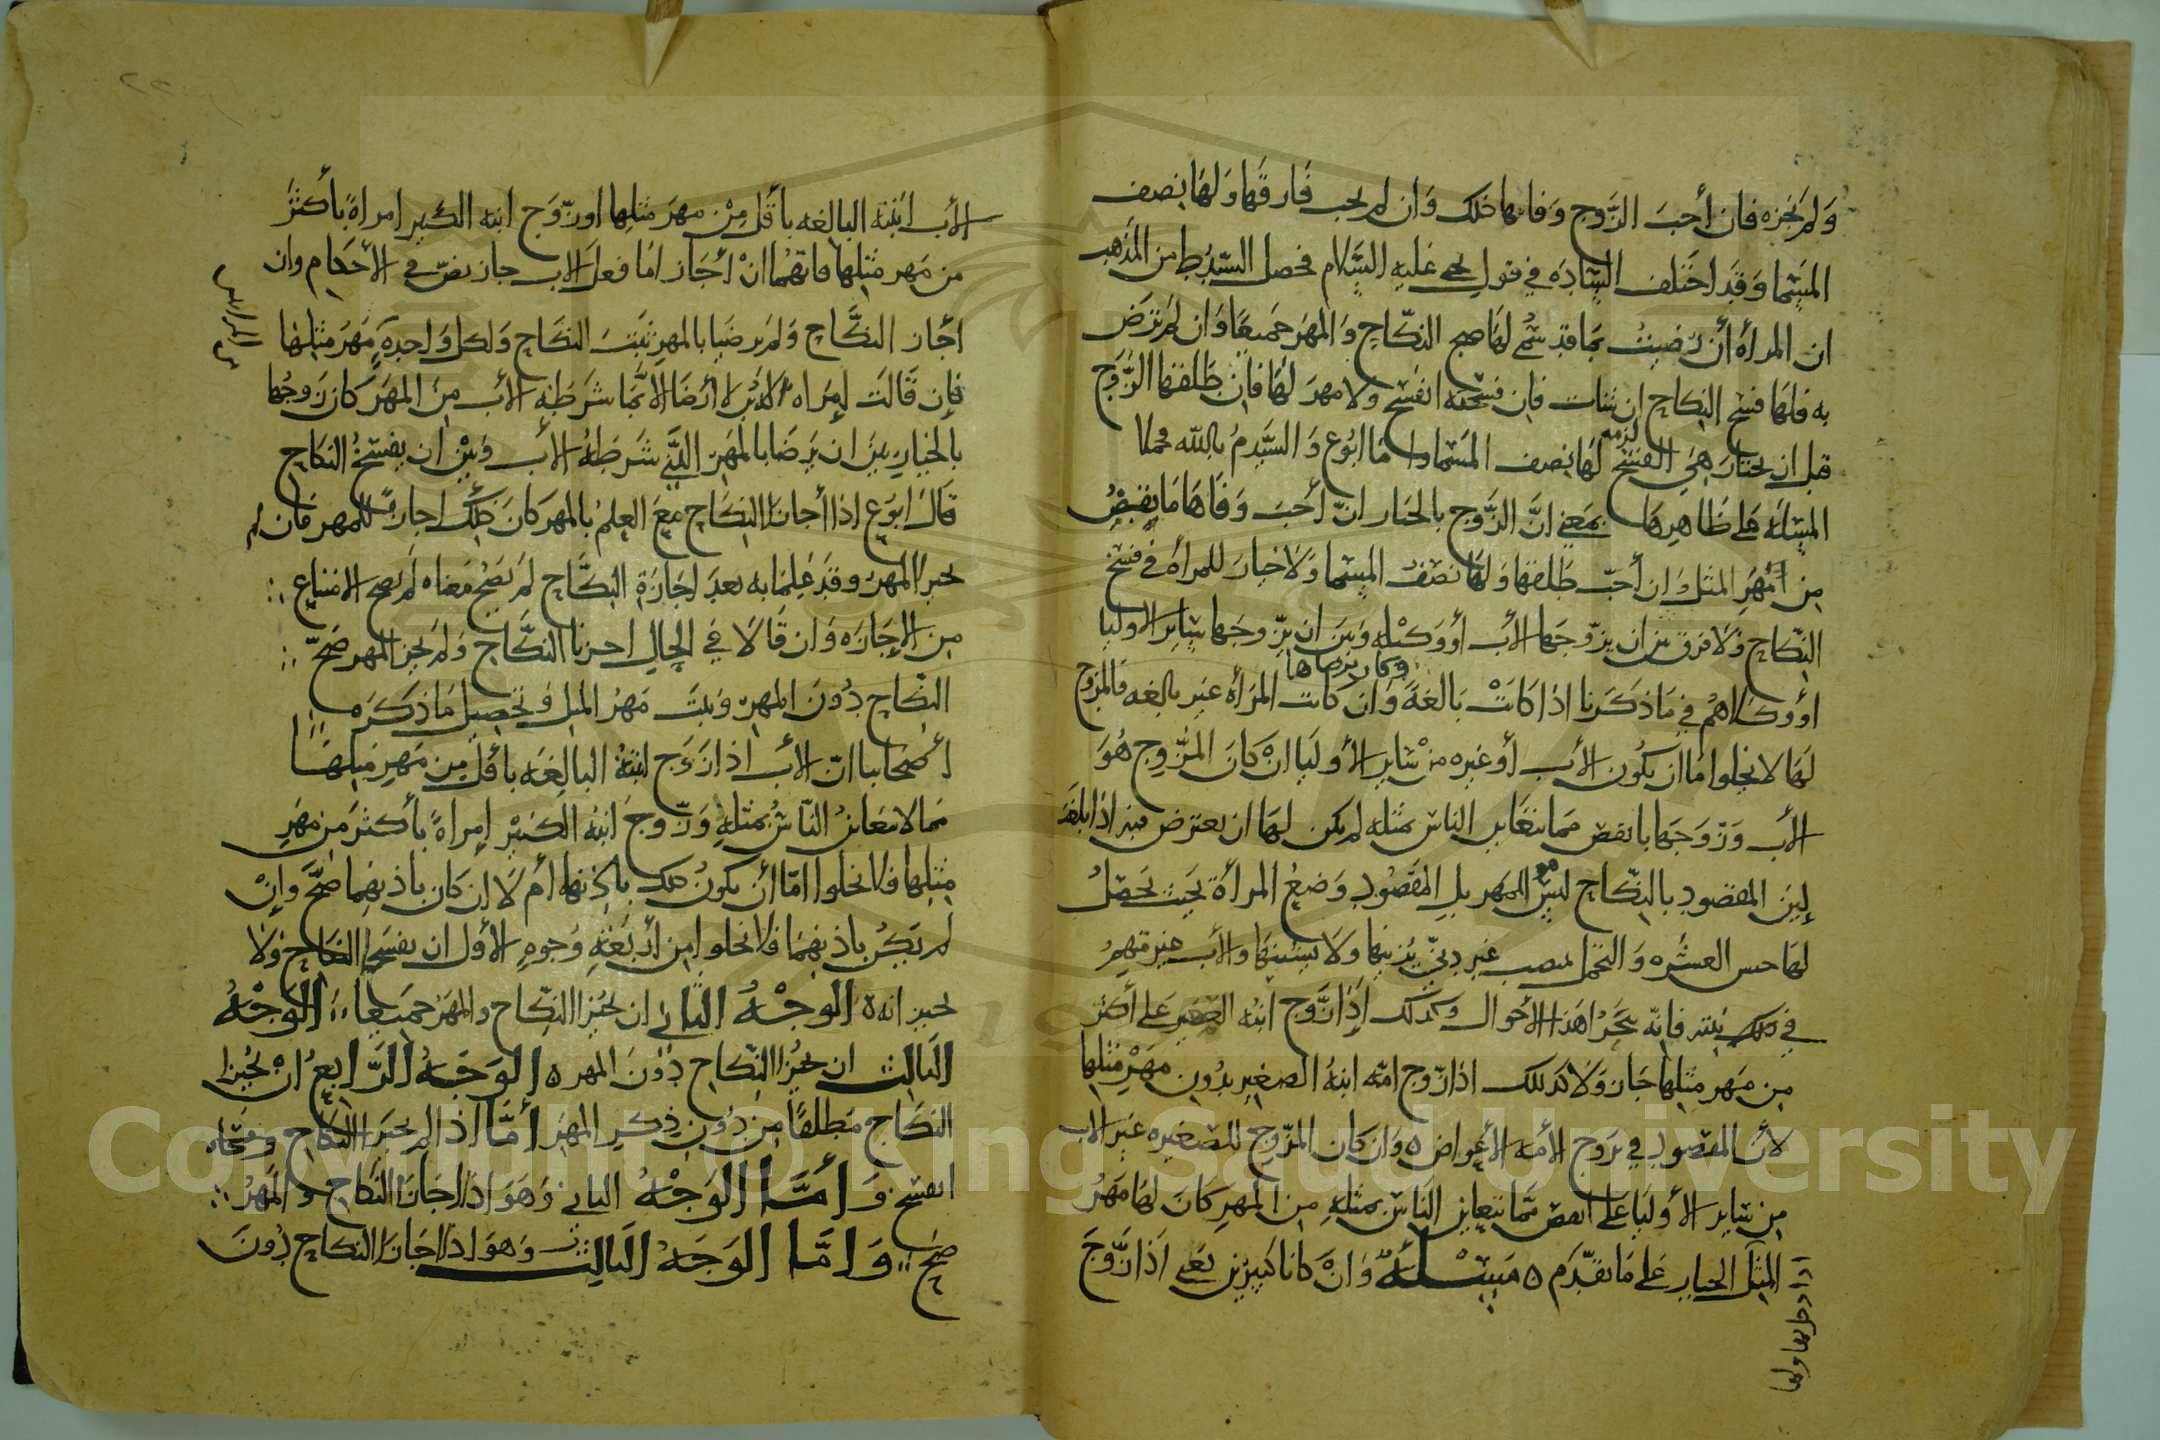 ولم نجزه فان أحب الزوج وفاها ذلك وان لم يحب فارقها ولها نصف
المسما وقد اختلف السادة في قول يحي عليه السلام فحصل السيد ط من المذهب
ان المرأة أن رضيت بما قد سمي لها صح النكاح والمهر جميعا وان لم ترض
به فلها فسخ النكاح ان شات فان فسخته انفسخ ولا مهر لها فان طلقها الزوج
قبل ان تختار هي الفسخ لزمه لها نصف المسما واما ابوع والسيد م بالله فحملا
المسئلة على ظاهرها بمعنى ان الزوج بالخيار ان أحب وفاها ما ينقص
من مهر المثل وان أحب طلقها ولها نصف المسما ولا خيار للمرأة في فسخ
النكاح ولا فرق بين ان يزوجها الأب أو وكيله وبين ان يزوجها سائر الاوليا
أو وكلاهم في ما ذكرنا اذا كانت بالغة وان كانت المرأة غير بالغه فالمزوج
لها لا يخلوا اما ان يكون الأب أو غيره من سائر الأوليا ان كان المزوج هو
الأب وزوجها بانقص مما يتغابن الناس بمثله لم يكن لها ان تعترض فيه اذا بلغت
لين المقصود بالنكاح ليس هو المهر بل المقصود وضع المرأة بحيث يحصل
لها حسن العشره والتحمل لمنصب غير دني يزينها ولا يشينها والأب غير متهم
في ذلك فانه يتحرا هذا الأحوال وكذلك إذا زوج ابنه الصغير على أكثر
من مهر مثلها جاز ولا كذلك اذا زوج امه ابنه الصغير بدون مهر مثلها
لأن المقصود في تزوج الأمة الأعواض ه وان كان المزوج للصغيره غير الاب
من سائر الأوليا على انقص مما يتغابن الناس بمثله من المهر كان لها مهر
المثل الخيار على ما تقدم ه مسئلة وان كانا كبيرين يعني اذا زوج
الأب ابنته البالغه بأقل من مهر مثلها او زوج ابنه الكبير امراة بأكثر
من مهر مثلها فانهما ان أجازا ما فعل الاب جاز نص في الأحكام وان
اجازا النكاح ولم يرضيا بالمهر ثبت النكاح ولكل واحدة مهر مثلها
فإن قالت إمراة الابن لا أرضا الا بما شرطه الأب من المهر كان زوجها
بالخيار بين ان يرضا بالمهر الذي شرطه الأب وبين ان يفسخ النكاح
قال ابوع اذا أجازا النكاح مع العلم بالمهر كان ذلك اجازة للمهر فان لم
يجيزا المهر وقد علما به بعد اجازة النكاح لم يصح معناه لم يصح الامتناع
من الإجازه وان قالا في الحال اجزنا النكاح ولم نجز المهر صح
النكاح دون المهر وثبت مهر المثل وتحصيل ما ذكره
أصحابنا ان الأب اذا زوج ابنته البالغه بأقل من مهر مثلها
مما لا يتغابن الناس بمثله وزوج ابنه الكبير إمراة بأكثر من مهر
مثلها فلا يخلوا امّا أن يكون ذلك باذنهما أم لا ان كان باذنهما صح وان
لم يكن باذنهما فلا يخلوا من أربعة وجوه الأول ان يفسخا النكاح ولا
يجيزانه ه الوجه الثاني ان يجيزا النكاح والمهر جميعا الوجه
الثالث ان يجيزا النكاح دون المهر ه الوجه الرابع ان يجيزا
النكاح مطلقا من دون ذكر المهر أما اذا لم يجيزا النكاح وفسخاه
انفسخ وأما الوجه الثاني وهو اذا اجازا النكاح والمهر
صح وامّا الوجه الثالث وهو اذا اجازا النكاح دون